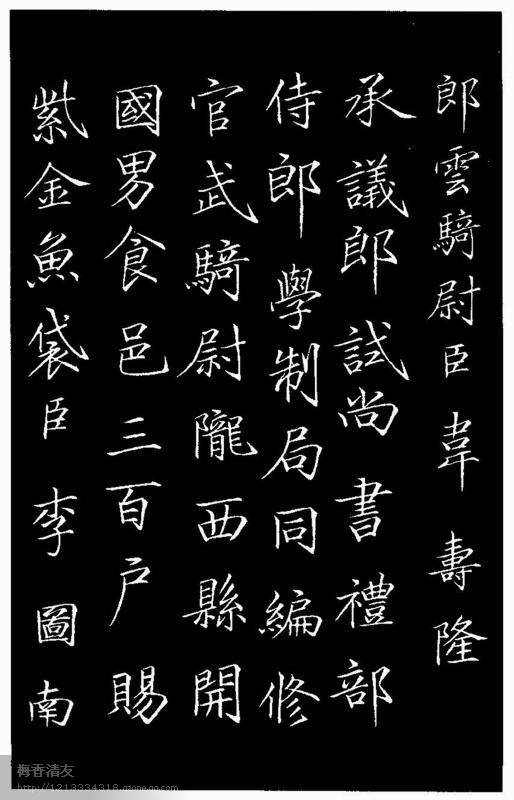 郎雲騎尉臣韋壽隆
承議郎試尚書禮部
侍郎學制局同編修
官武騎尉隴西縣開
國男食邑三百户賜
紫金魚袋臣李圖南
梅香清友
http://1213334318.qzone.qq.com